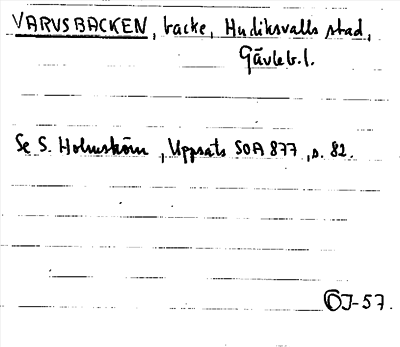 VARVSBACKEN, backe, Hudiksvalls stad,
Gävleb. l.
Se S. Holmström, Uppsats SOA 877, s. 82.
OJ-57.